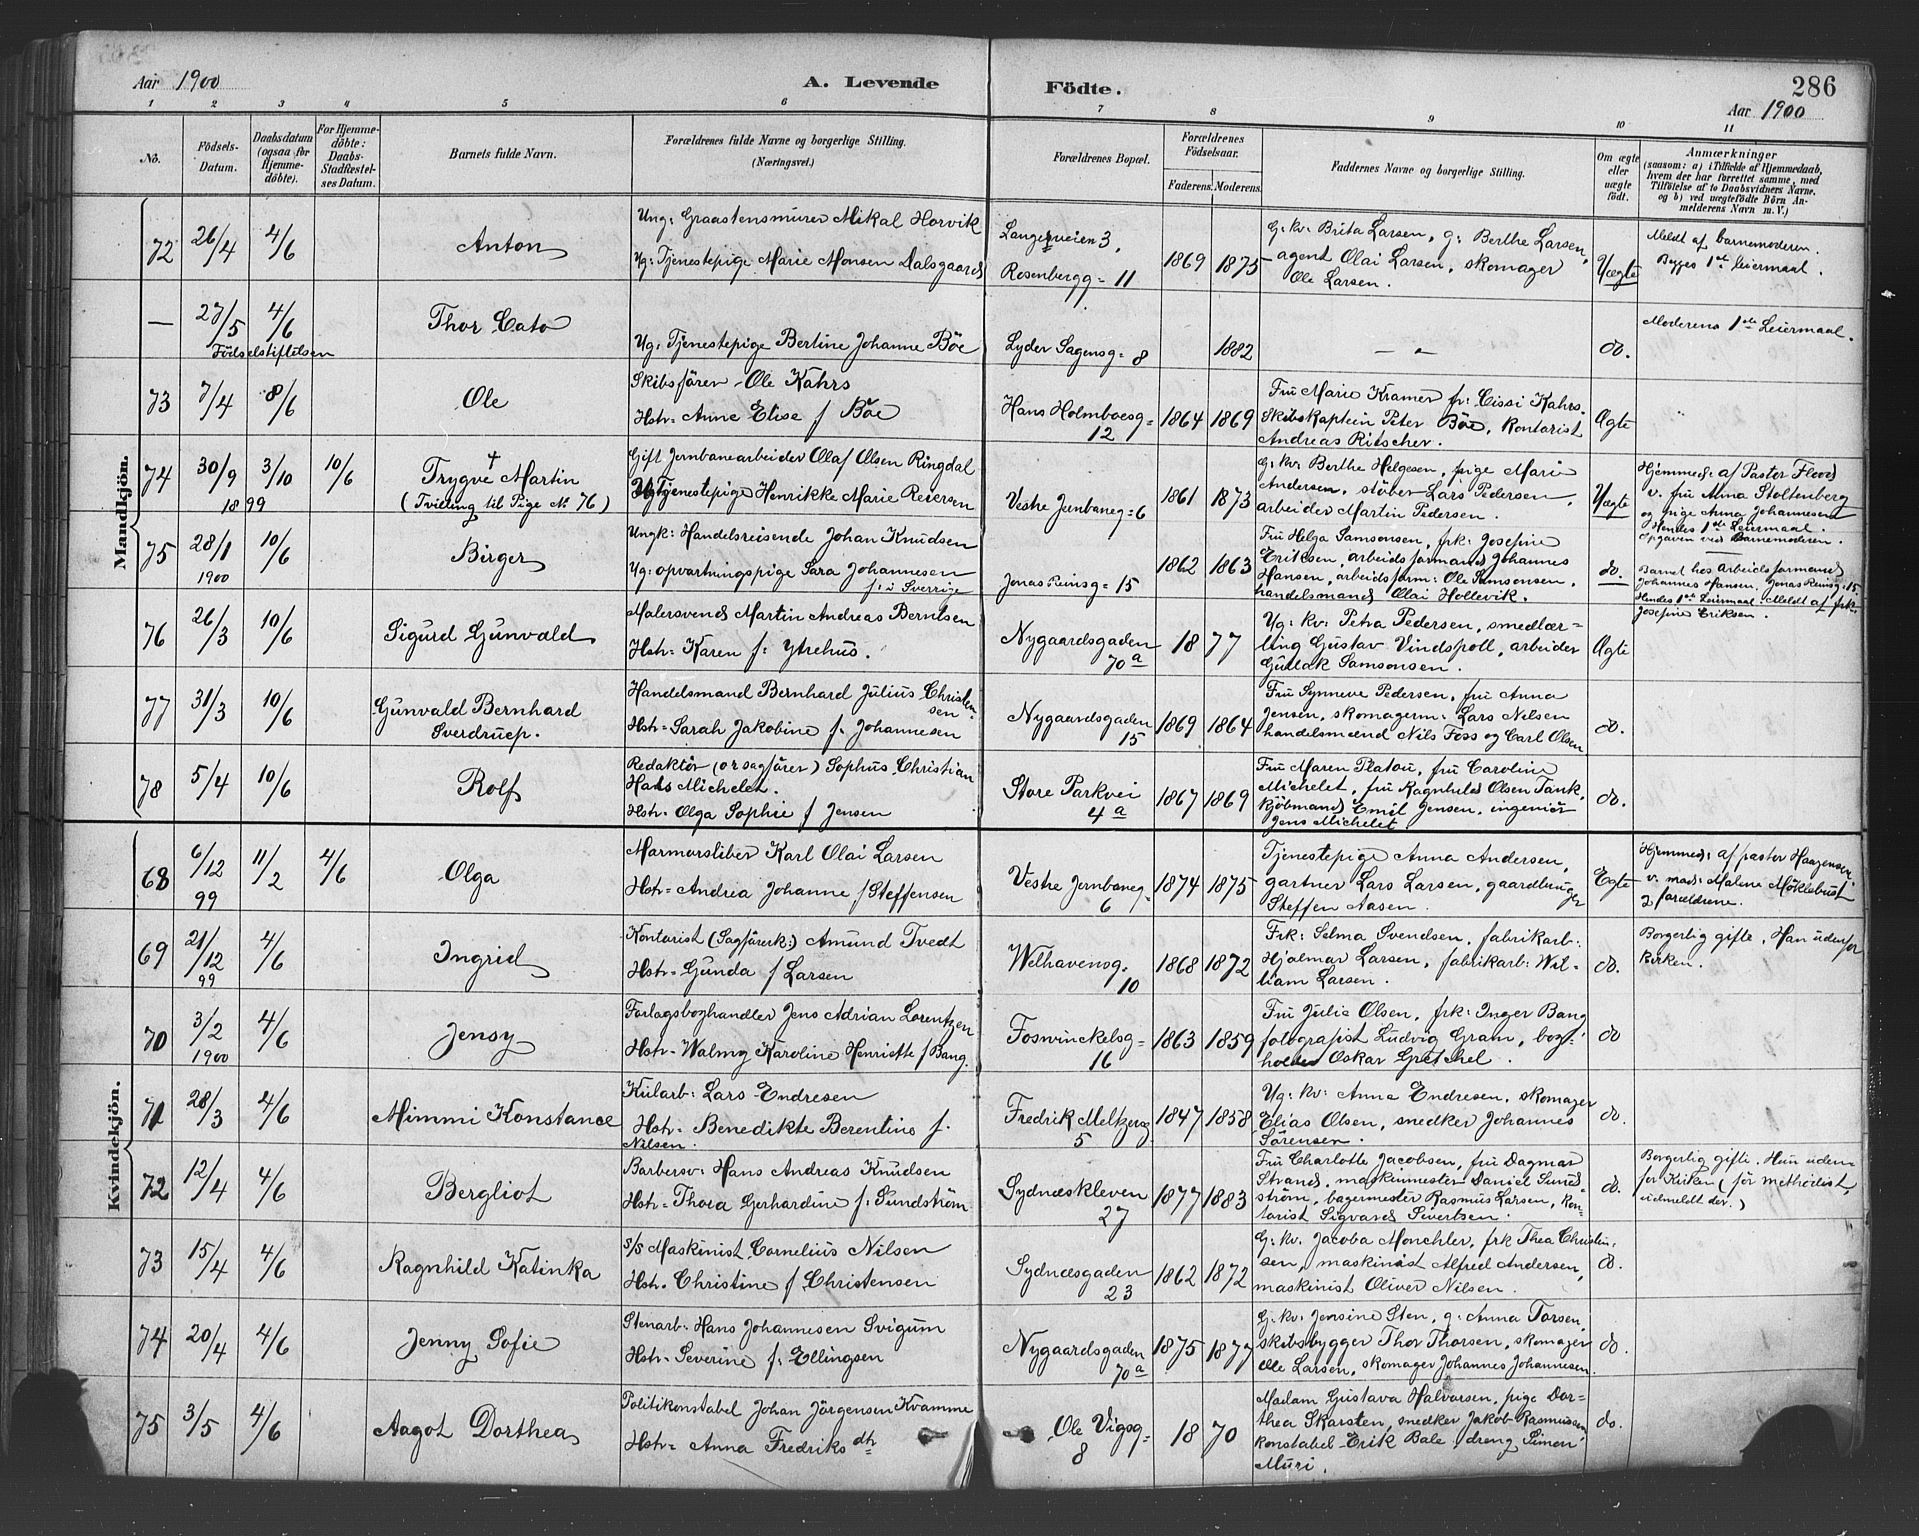 Aar 1900
A. Levende
Födte.
286
Aar 1900
1 2 3 4 5 6 7 8 9 10 11
No.
Födsels-Datum.
Daabsdatum (ogsaa for Hjemme-döbte).
For Hjemme-döbte: Daabs-Stadfæstel-ses Datum.
Barnets fulde Navn.
Forældrenes fulde Navne og borgerlige Stilling.
(Næringsvei.)
Forældrenes Bopæl.
Forældrenes Födselsaar.
Faderens. Moderens.
Faddernes Navne og borgerlige Stilling.
Om ægte eller uægte födt.
Anmærkninger
(saasom: a) i Tilfælde af Hjemmedaab,
hvem der har forrettet samme, med
Tilföielse af to Daabsvidners Navne,
og b) ved uægtefödte Börn An-
melderens Navn m. V.)
Mandkjön.
72 26/4 4/6 Anton
Ung: Graastensmurer Mikal Horvik
Ug: Tjenestepige Marie Monsen Dalsgaard
Langeveien 3.
Rosenbergg= 11
1869 1875
G: kv: Brita Larsen, g: Berthe Larsen,
agent Olai Larsen, skomager
Ole Larsen.
Uægte
Meldt af barnemoderen.
Begges 1ste Leiermaal.
— 27/5 4/6 Thor Cato
Födselstiftelsen
Ug: Tjenestepige Bertine Johanne Böe
Lyder Sagensg= 8
1882
— „ —
do.
Moderens 1ste Leiermaal.
73 7/4 8/6 Ole
Skibsförer Ole Kahrs
Hstr= Anne Elise f Böe
Hans Holmboesg= 12
1864 1869
Fru Marie Kramer fr: Cissi Kahrs
Skibskaptein Peter Böe, kontorist
Andreas Ritscher.
Ægte
74 30/9 1899 3/10 10/6 Trygve † Martin
(Tvilling til Pige No 76)
Gift Jernbanearbeider Olaf Olsen Ringdal
Ug: Tjenestepige Henrikke Marie Reiersen
Vestre Jernbaneg= 6
1861 1873
G: kv: Berthe Helgesen, pige Marie
Andersen, stöber Lars Pedersen,
arbeider Martin Pedersen.
Uægte
Hjemmed: af Pastor Flood
v. fru Anna Stoltenberg
og pige Anna Johannesen
Hendes 1ste Leiermaal.
Opgaven ved Barnemoderen.
75 28/1 1900 10/6 Birger
Ungk: Handelsreisende Johan Knudsen
Ug: opvartningspige Sara Johannesen
f: i Sverrige
Jonas Reinsg= 15
1862 1863
Fru Helga Samsonsen, frk: Josefine
Eriksen, arbeidsformand Johannes
Hansen, arbeidsform: Ole Samsonsen,
handelsmand Olai Hollevik.
do.
Barnet hos Arbeidsformand
Johannes Hansen, Jonas Reinsg= 15
Hendes 1ste Leiermaal. Meldt af frk:
Josefine Eriksen.
76 26/3 10/6 Sigurd Gunvald
Malersvend Martin Andreas Berntsen
Hstr= Karen f: Ytrehus.
Nygaardsgaden 70a
1877
Ug: kv: Petra Pedersen, smedlær=
ling Gustav Vindspoll, arbeider
Gullak Samsonsen.
Ægte
77 31/3 10/6 Gunvald Bernhard
Sverdruep.
Handelsmand Bernhard Julius Christen-
sen
Hstr= Sarah Jakobine f. Johannesen
Nygaardsgaden 15
1869 1864
Fru Synneve Pedersen, fru Anna
Jensen, skomagerm: Lars Nilsen
handelsmænd Nils Foss og Carl Olsen
do.
78 5/4 10/6 Rolf
Redaktör (orsagförer) Sophus Christian
Hans Michelet.
Hstr= Olga Sophie f Jensen
Store Parkvei 4a
1867 1869
Fru Maren Platou, fru Caroline
Michelet, fru Ragnhild Olsen Tank,
Kjöbmand Emil Jensen, ingeniör
Jens Michelet
do.
Kvindekjön.
68 6/12 99 11/2 4/6 Olga
Marmorsliber Karl Olai Larsen
Hstr= Andrea Johanne f Steffensen
Vestre Jernbaneg= 6
1874 1875
Tjenestepige Anna Andersen,
gartner Lars Larsen, gaardbruger
Steffen Aasen.
Egte
Hjemmed: af pastor Haazensen
v. mad: Malene Möklebust
2 forældrene.
69 21/12 99 4/6 Ingrid
Kontorist (Sagförerk:) Amund Tvedt
Hstr= Gunda f Larsen
Welhavensg. 10
1868 1872
Frk: Selma Svendsen, fabrikarb:
Hjalmar Larsen, fabrikarb: Wil-
liam Larsen.
do.
Borgerlig gifte, Han udenfor
Kirken.
70 3/2 1900 4/6 Jensy
Forlagsboghandler Jens Adrian Lorentzen
Hstr= Walmy Karoline Henriette f Bang.
Foswinckelsg= 16
1863 1859
Fru Julie Olsen, frk: Inger Bang
fotografist Ludvig Gram, bog-
holder Oskar Gretchel.
do
71 28/3 4/6 Mimmi Konstance
Kularb: Lars Endresen
Hstr= Benedikte Berentine f.
Nilsen.
Fredrik Meltzersg 5
1847 1858
Ug: kv: Anna Endresen, skomager
Elias Olsen, snedker Johannes
Sörensen.
do.
72 12/4 4/6 Bergliot
Barbersv: Hans Andreas Knudsen
Hstr= Thoea Gerhardine f: Sundström
Sydneskleven 27
1877 1883
Fru Charlotte Jacobsen, fru Dagmar
Strand, maskinmester Daniel Sund-
ström, bagermester Rasmus Larsen, kon-
torist Sigvard Sivertsen.
do.
Borgerlig gifte. Hun uden-
for Kirken (för methodist,
udmeldt der.)
73 15/4 4/6 Ragnhild Katinka
s/s Maskinist Cornelius Nilsen
Hstr= Christine f Christensen
Sydnesgaden 23
1862 1872
G: kv. Jacoba Monchler, frk Thea Christen-
sen, maskinist Alfred Andersen,
maskinist Oliver Nilsen.
do.
74 20/4 4/6 Jenny Sofie
Stenarb: Hans Johannesen Svigum
Hstr= Severine f: Ellingsen
Nygaardsgaden 70a
1875 1877
G: kv: Jensine Sten, g: Anna Torsen,
skibsbygger Thor Thorsen, skomager
Ole Larsen, skomager Johannes Johannesen.
do.
75 3/5 4/6 Aagot Dorthea
Politikonstabel Johan Jörgensen Kvamme
Hstr= Anna Fredriks dtr
Ole Vigsg= 8
1870
Madam Gustava Halvorsen, pige Dor=
thea Skarsten, snedker Jakob Rasmussen
konstabel Erik Bale, dreng Simen
Muri.
do.